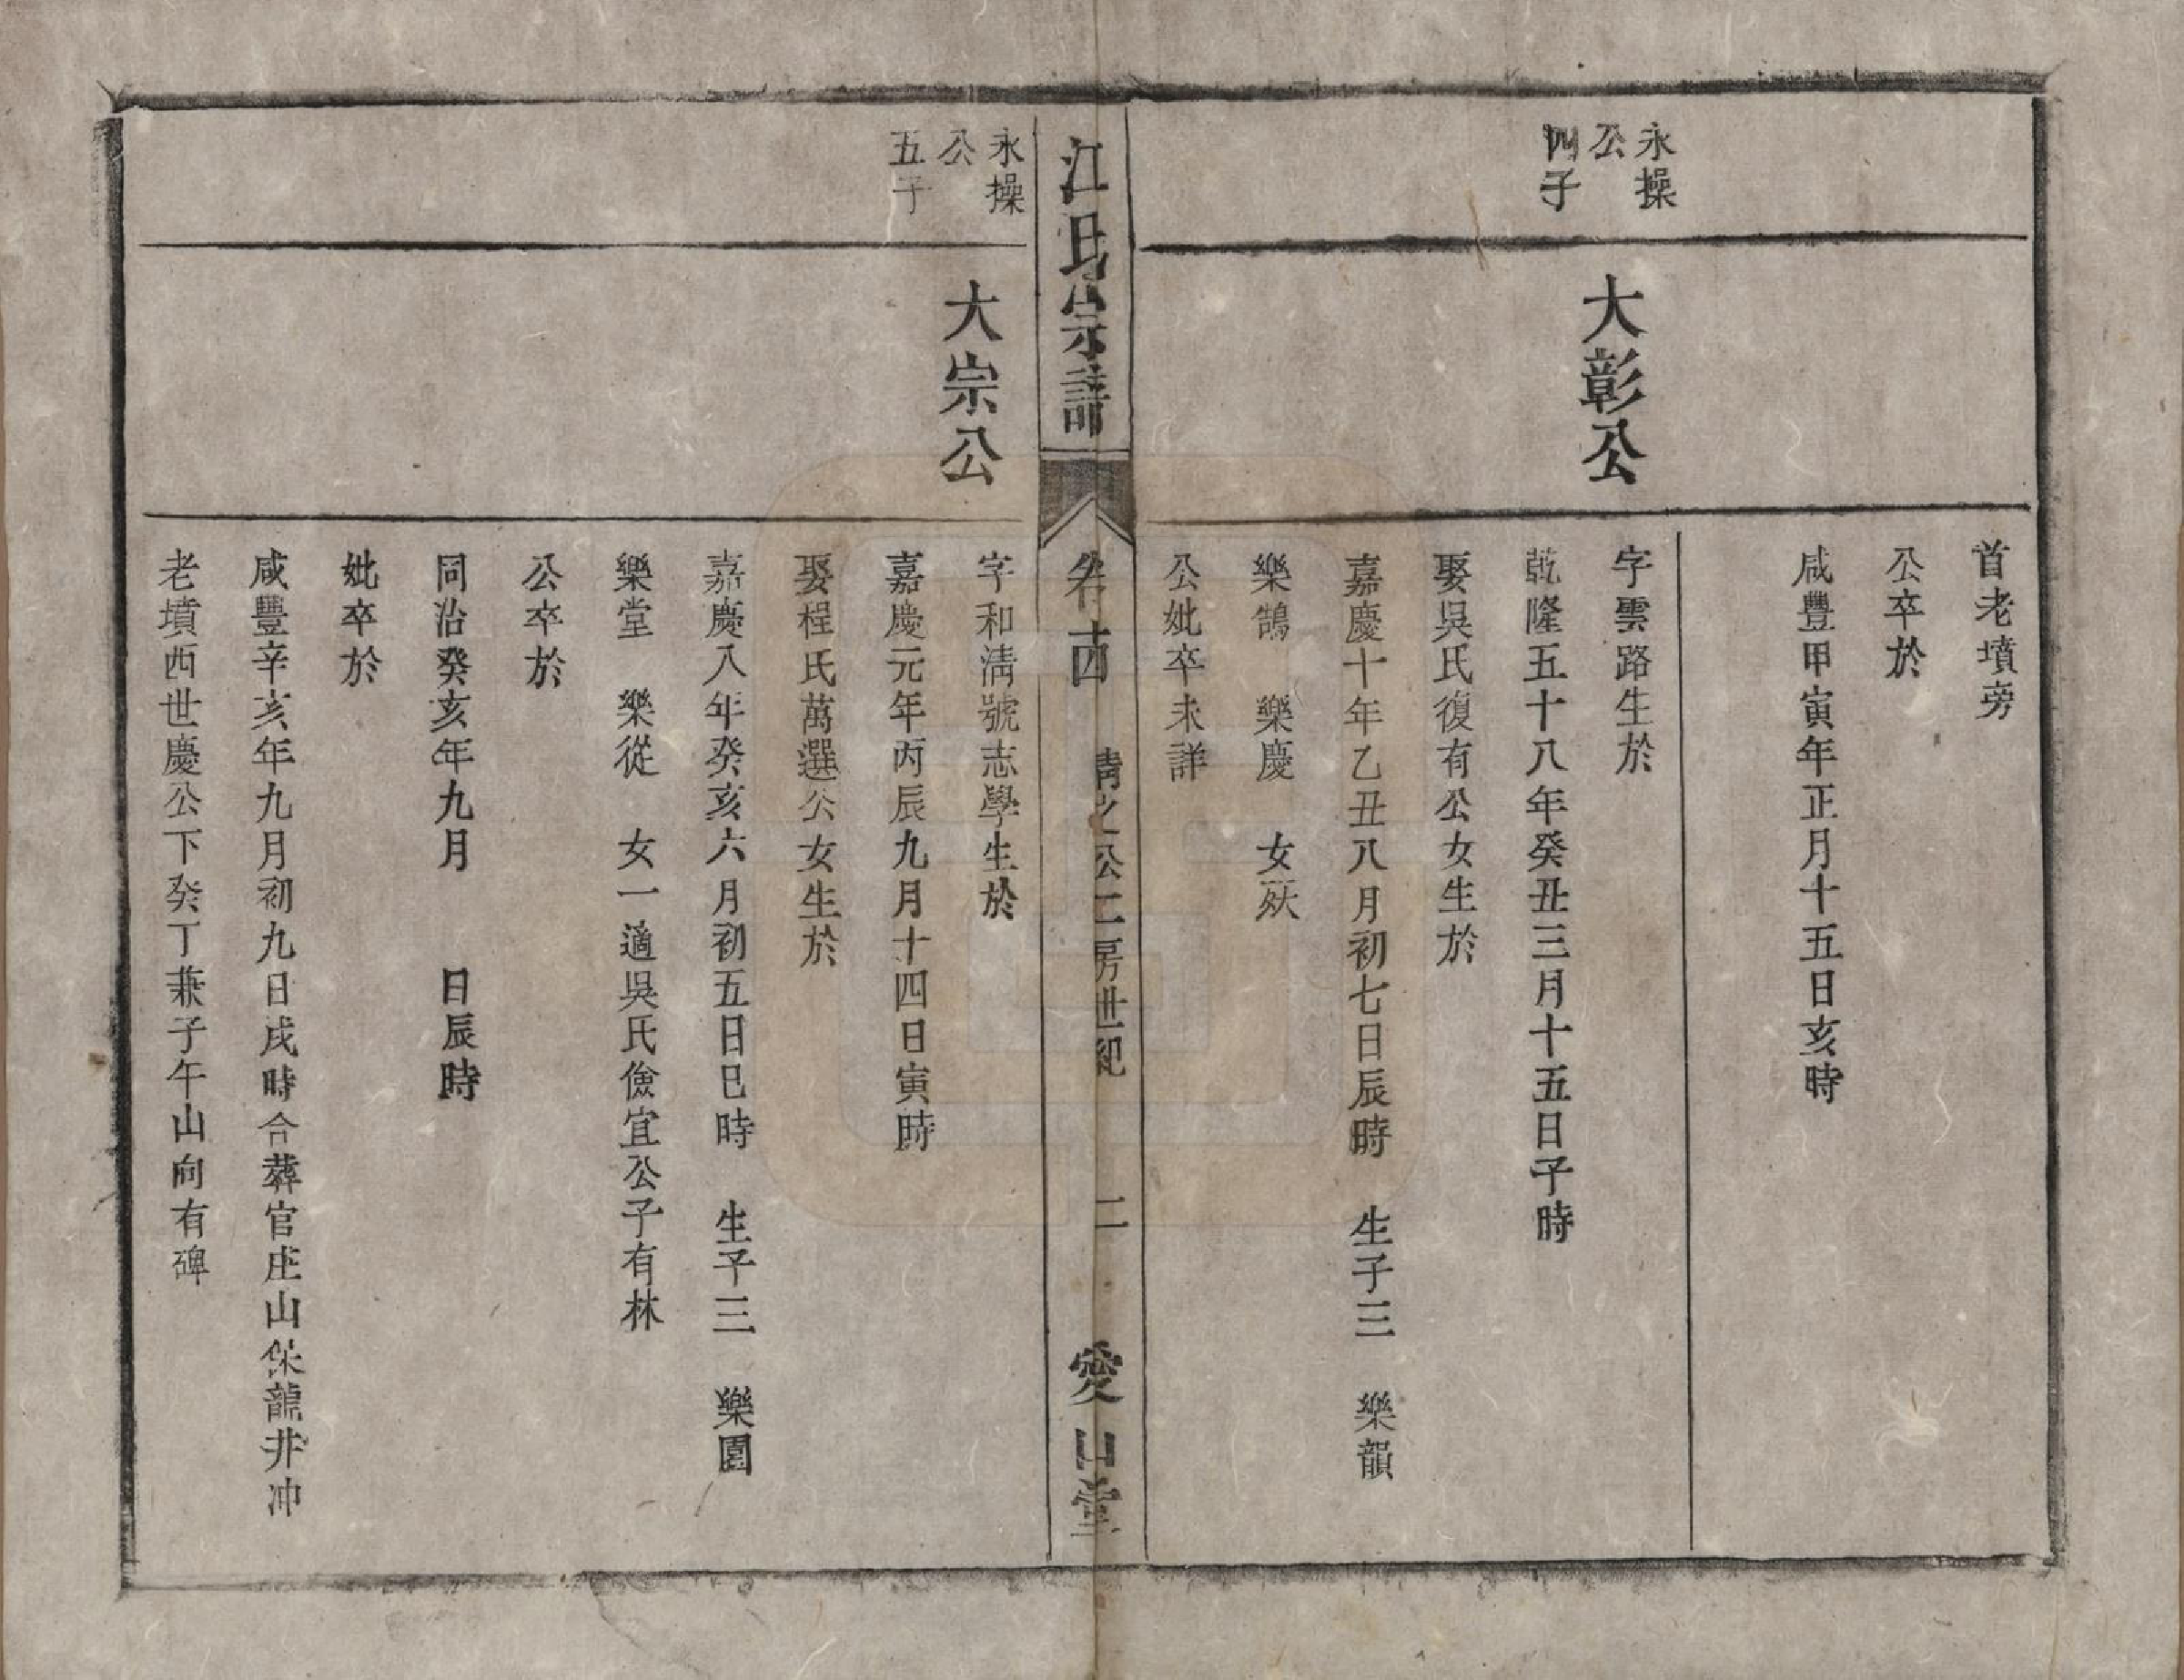 首老墳旁
公卒於
咸豐甲寅年正月十五日亥時
永操
公
四子
大彰公
字雲路生於
乾隆五十八年癸丑三月十五日子時
娶吳氏復有公女生於
嘉慶十年乙丑八月初七日辰時 生子三 樂韻
樂鵠 樂慶 女殀
公妣卒未詳
江氏宗譜
卷十四
清之公二房世紀
二
愛山堂
永操
公
五子
大宗公
字和清號志學生於
嘉慶元年丙辰九月十四日寅時
娶程氏萬選公女生於
嘉慶八年癸亥六月初五日巳時 生子三 樂園
樂堂 樂從 女一適吳氏儉宜公子有林
公卒於
同治癸亥年九月 日辰時
妣卒於
咸豐辛亥年九月初九日戌時合葬官庄山保龍井冲
老墳西世慶公下癸丁兼子午山向有碑